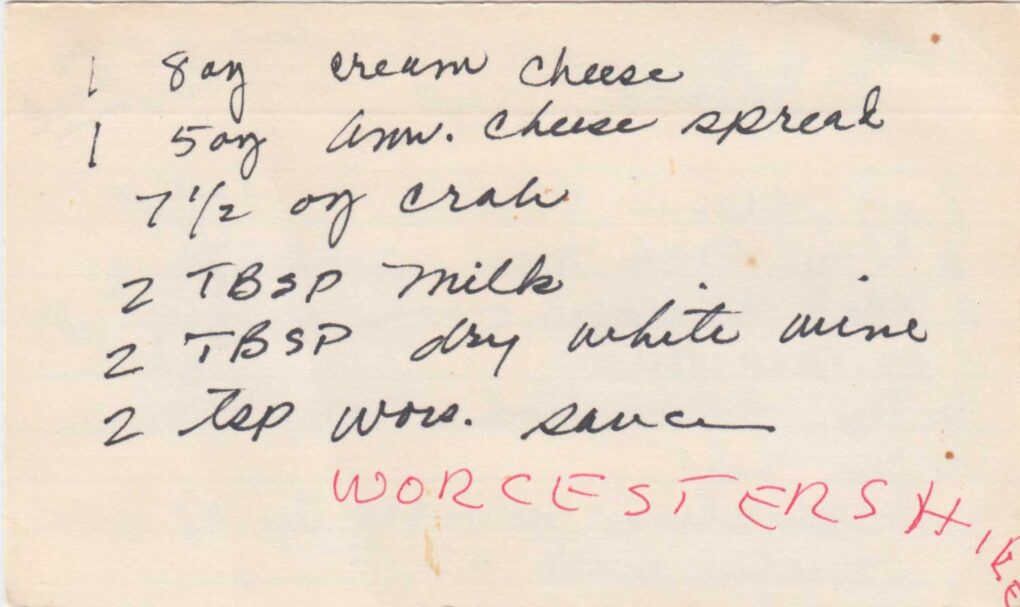 1 8 oz cream cheese
1 5 oz Am. cheese spread
7 1/2 oz crab
2 TBSP milk
2 TBSP dry white wine
2 tsp wors. sauce
WORCESTERSHIRE